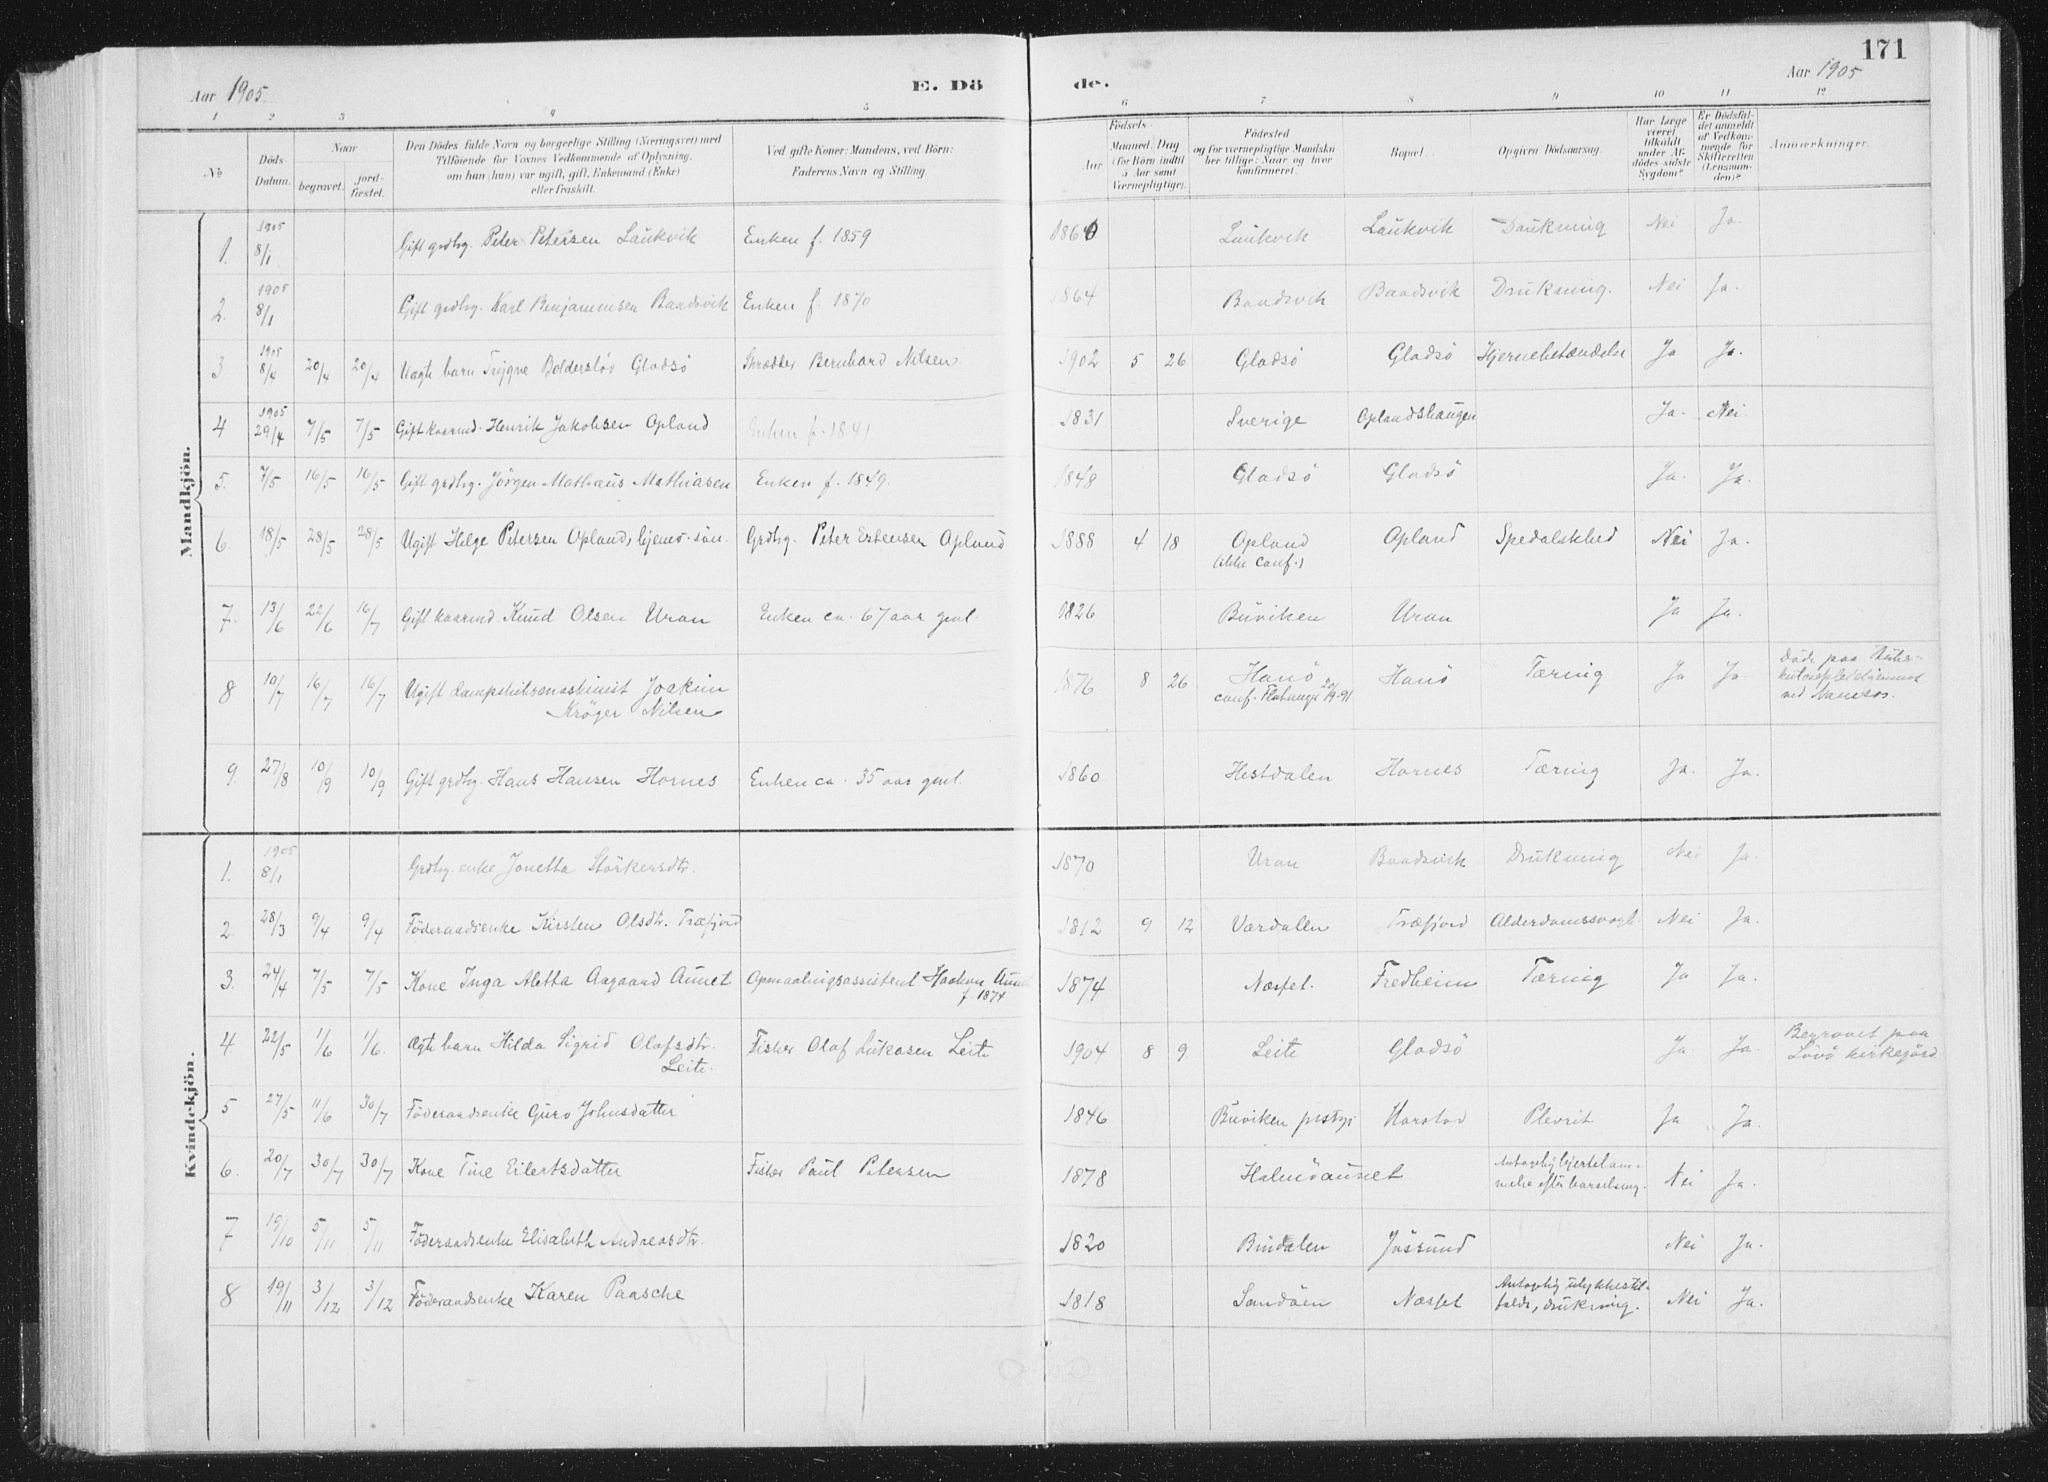 171
Aar 1905.
E. Dö
de.
Aar 1905
1 2 3 4 5 6 7 8 9 10 11 12
No
Döds Datum.
Naar
begravet.
jord-fæstet.
Den Dödes fulde Navn og borgerlige Stilling (Næringsvei) med
Tilföiende for Voxnes Vedkommende af Oplysning,
om han (hun) var ugift, gift, Enkemand (Enke)
eller fraskilt.
Ved gifte Koner: Mandens, ved Börn:
Faderens Navn og Stilling.
Födsels
Aar
Maaned Dag
(for Börn indtil
5 Aar samt
Værnepligtige).
Födested
og for værnepligtige Mandska-
ber tillige: Naar og hvor
konfirmeret.
Bopæl.
Opgiven Dödsaarsag.
Har Læge
været
tilkaldt
under Af-
dödes sidste
Sygdom?
Er Dödsfal-
det anmeldt
af Vedkom-
mende for
Skifteretten
(Lensman-
den)?
Anmærkninger.
Mandkjön.
1. 1905 8/1 Gift grdbg. Peter Petersen Laukvik Enken f. 1859 1860 Laukvik Laukvik Drukning Nei Ja.
2. 1905 8/1 Gift grdbg. Karl Benjaminsen Baadsvik Enken f. 1870 1864 Baadsvik Baadsvik Drukning. Nei Ja.
3 1905 8/4 20/4 20/4 Uægte barn Trygve Gladsö Skrædder Bernhard Nilsen 1902 5 26 Gladsö Gladsö Hjernebetændelse Ja Ja.
4 1905 29/4 7/5 7/5 Gift kaarmd. Henrik Jakobsen Opland Enken f. 1841 1831 Sverige Oplandshaugen Ja. Nei.
5. 7/5 16/5 16/5 Gift grdbg. Jörgen Mathæus Mathiasen Enken f. 1849. 1848 Gladsö Gladsö Ja. Ja.
6. 18/5 28/5 28/5 Ugift Helge Petersen Opland, hjemv. sön. Grdbg. Peter Opland 1888 4 18 Opland Opland Spedalskhed Nei Ja.
(ikke conf.)
7. 13/6 22/6 16/7 Gift kaarmd Knud Olsen Uran Enken ca. 67 aar gml. 1826 Buviken Uran Ja Ja.
8 10/7 16/7 16/7 Ugift dampskibsmaskinist Joakim
Kröger Nilsen
1876 8 26 Hanö
conf. 20/9-91
Hanö Tæring Ja Ja.
Döde paa
ved Namsos.
9. 27/8 10/9 10/9 Gift grdbg. Hans Hansen Hornes Enken ca. 35 aar gml. 1860 Hestdalen Hornes Tæring Ja. Ja.
Kvindekjön.
1. 1905 8/1 Grdbg. enke Jonetta Störkersdtr. 1870 Uran Baadsvik Drukning Nei Ja.
2. 28/3 9/4 9/4 Föderaadsenke Kirsten Olsdtr. Træfjord 1812 9 12 Værdalen Træfjord Alderdomssvagh. Nei Ja.
3. 24/4 7/5 7/5 Kone Inga Aletta Aagaard Aunet Opmaalingsassistent Haakon Aunet
f. 1874
1874 Næsset. Fredheim Tæring Ja Ja.
4. 22/5 1/6 1/6. Ægte barn Hilda Sigrid Olafsdtr.
Leite.
Fisker Olaf Lukasen Leite 1904 8 9. Leite Gladsö Ja. Ja.
Begravet paa
Lövö kirkegård
5 27/5 11/6 30/7 Föderaadsenke Guro Johnsdatter 1846 Buviken prstgj. Harstad Plevrit Ja Ja.
6. 20/7 30/7 30/7 Kone Tine Eilertsdatter Fisker Paul Petersen 1878 Holmöaunet
Antagelig hjertelam-
melse efter barselseng.
Nei Ja.
7 19/10 5/11 5/11 Föderaadsenke Elisabeth Andreasdtr. 1820 Bindalen Jössund Nei Ja.
8 19/11 3/12 3/12 Föderaadsenke Karen Paasche 1818 Sandöen Næsset
Antagelig ulykkestil-
fælde, drukning.
Nei Ja.